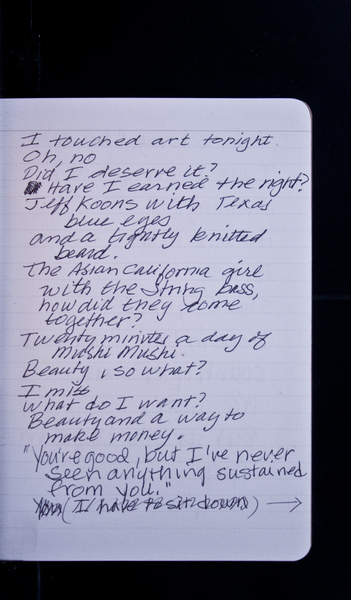 I touched art tonight.
Oh, no
Did I deserve it?
Have I earned the right?
Jeff Koons with Texas
blue eyes
and a tightly knitted
beard.
The Asian California girl
with the string bass,
how did they come
together?
Twenty minutes a day of
Mushi Mushi.
Beauty, so what?
I miss
What do I want?
Beauty and a way to
make money.
"You're good, but I've never
seen anything sustained
from you."
(I have to sit down) →